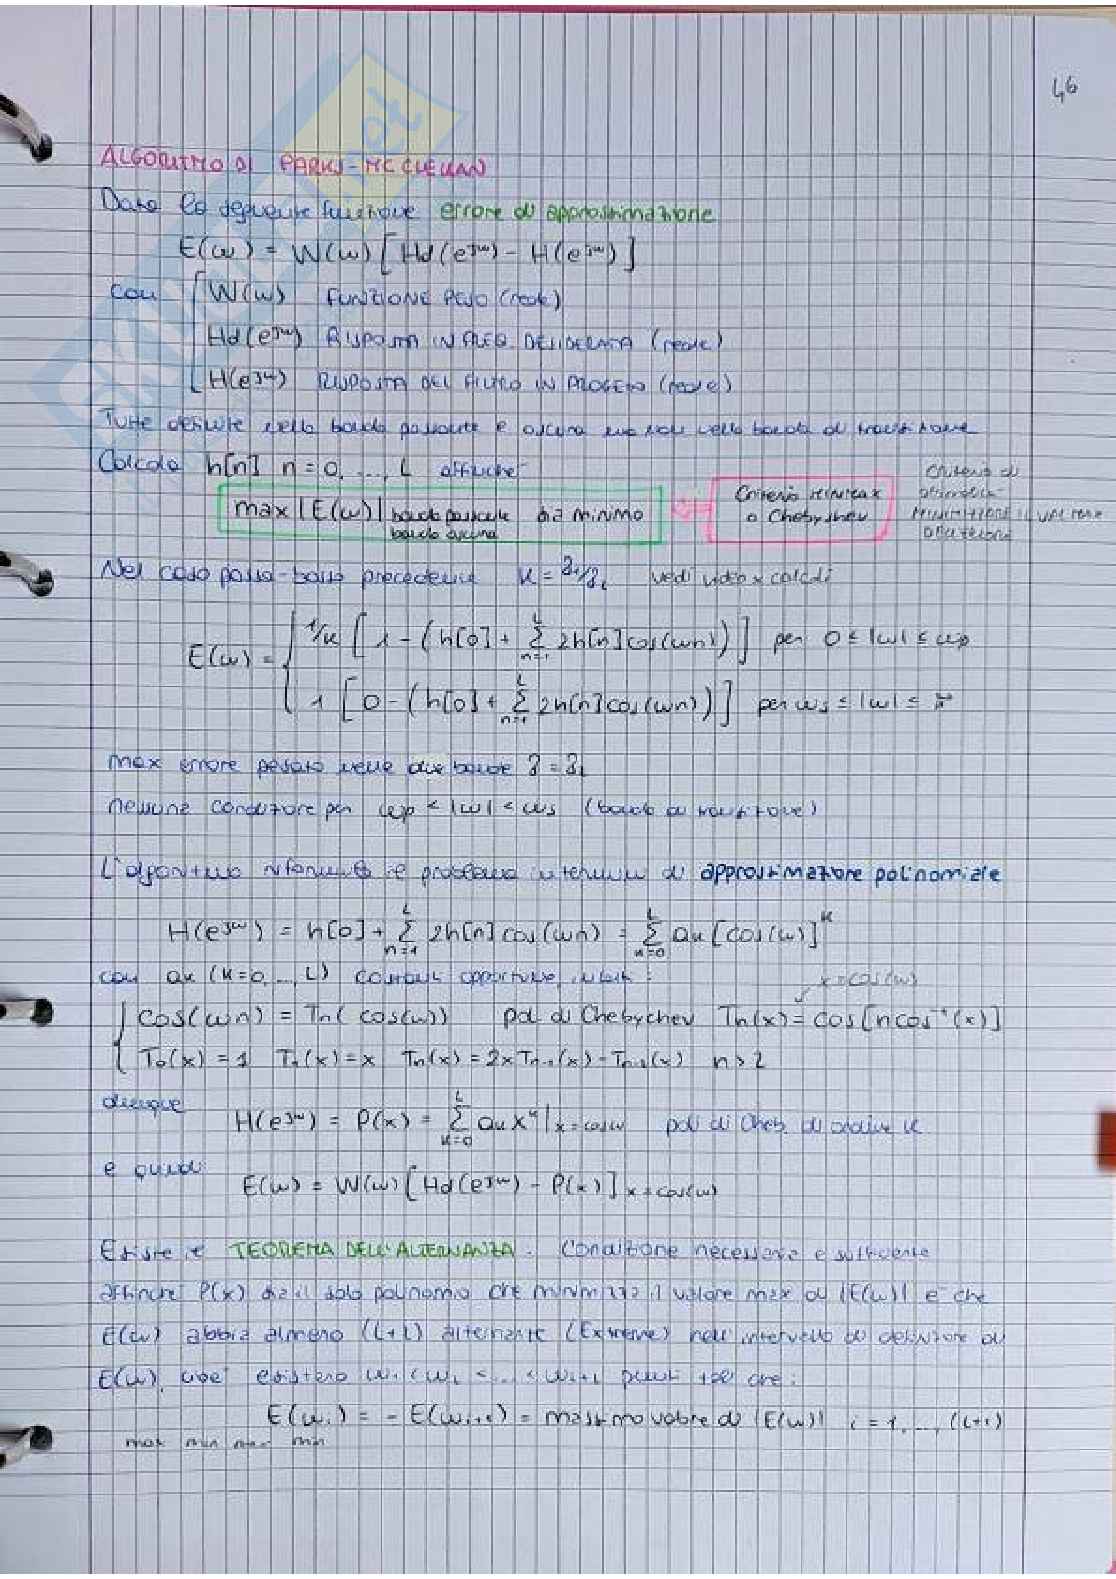 46
ALGORITMO DI PARKS-MC CLELLAN
Data la seguente funzione errore di approssimazione
E(ω) = W(ω) [Hd(e^jω) - H(e^jω)]
con W(ω) FUNZIONE PESO (reale)
Hd(e^jω) RISPOSTA IN FREQ. DESIDERATA (reale)
H(e^jω) RISPOSTA DEL FILTRO IN PROGETTO (reale)
Tutte definite nella banda passante e oscura ma non nella banda di transizione
Calcolo h[n] n=0, ..., L affinché
max |E(ω)| banda passante banda oscura sia minimo
Criterio minimax o Chebyshev
criterio di
Nel caso passa-basso precedente K = δ1/δ2 vedi video x calcoli
E(ω) = { 1/K [1 - (h[0] + Σ n=1 L 2h[n]cos(ωn))] per 0 ≤ |ω| ≤ ωp
1 [0 - (h[0] + Σ n=1 L 2h[n]cos(ωn))] per ωs ≤ |ω| ≤ π
max errore pesato nelle due bande δ = δ2
nessuna condizione per ωp < |ω| < ωs (banda di transizione)
L'algoritmo il problema in termini di approssimazione polinomiale
H(e^jω) = h[0] + Σ n=1 L 2h[n] cos(ωn) = Σ k=0 L ak [cos(ω)]^k
con ak (k=0, ..., L) costanti opportune, infatti:
x = cos(ω)
cos(ωn) = Tn(cos(ω)) pol di Chebychev Tn(x) = cos[n cos⁻¹(x)]
T0(x) = 1 T1(x) = x Tn(x) = 2xTn-1(x) - Tn-2(x) n ≥ 2
dunque
H(e^jω) = P(x) = Σ k=0 L ak x^k |x=cosω pol di Cheb. di ordine k
e quindi
E(ω) = W(ω) [Hd(e^jω) - P(x)] x=cos(ω)
Esiste il TEOREMA DELL'ALTERNANZA. Condizione necessaria e sufficiente
affinché P(x) sia il solo polinomio che minimizza il valore max di |E(ω)| è che
E(ω) abbia almeno (L+2) alternanze (Extreme) nell'intervallo di definizione di
E(ω), cioè esistano ω1 < ω2 < ... < ωL+2 punti tali che:
E(ωi) = - E(ωi+1) = massimo valore di |E(ω)| i = 1, ..., (L+1)
max min max min